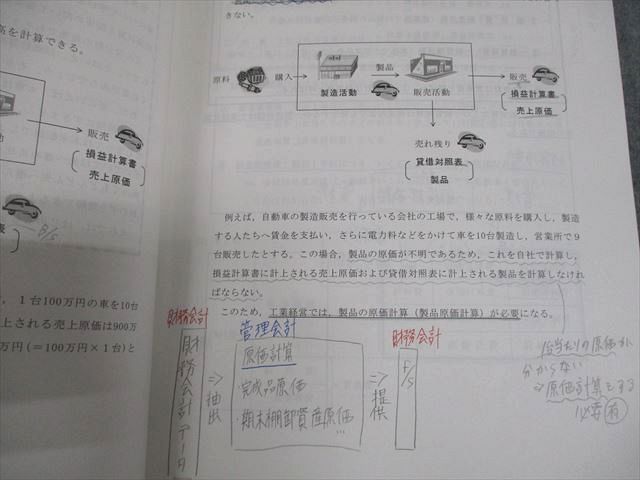 きない。
高を計算できる。
原料
購入
製造活動
製品
販売活動
販売
損益計算書
売上原価
売れ残り
貸借対照表
製品
販売
損益計算書
売上原価
B/S
例えば，自動車の製造販売を行っている会社の工場で，様々な原料を購入し，製造
する人たちへ賃金を支払い，さらに電力料などをかけて車を10台製造し，営業所で９
台販売したとする。この場合，製品の原価が不明であるため，これを自社で計算し，
損益計算書に計上される売上原価および貸借対照表に計上される製品を計算しなけれ
ばならない。
このため，工業経営では，製品の原価計算（製品原価計算）が必要になる。
，１台100万円の車を10台
上される売上原価は900万
万円(＝100万円×１台)と
財務会計
財務会計データ
⇒抽出
管理会計
原価計算
・完成品原価
・期末棚卸資産原価…
⇒提供
財務会計
F/S
1台当たりの原価が
分からない
⇒原価計算をする
必要有